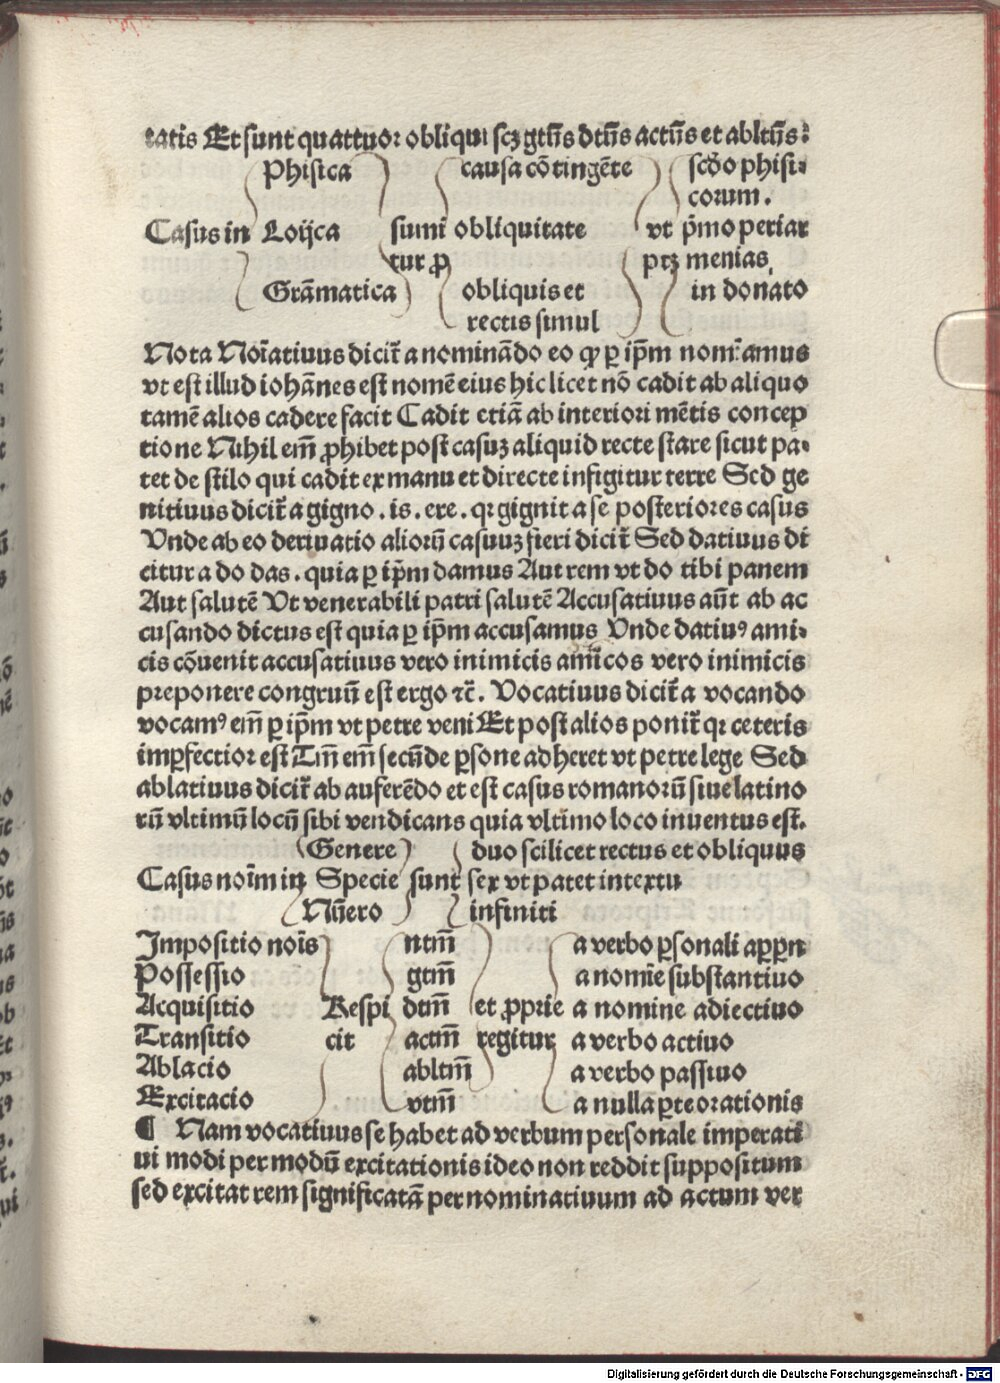 tatis Et sunt quattuor obliqui scꝫ gtūs dtūs actūs et abltūs:
Phisica causa cōtingēte scđo phisi⸗
corum.
Casus in Loijca sumi obliquitate vt p̄mo periar
tur ꝓ ptꝫ menias
Grāmatica obliquis et in donato
rectis simul
Nota Noīatiuus dicit̄ a nominādo eo ꝙ ꝑ ip̄m nominamus
vt est illud iohānes est nomē eius hic licet nō cadit ab aliquo
tamē alios cadere facit Cadit etiā ab interiori mētis concep
tione Nihil em̄ ꝓhibet post casuꝫ aliquid recte stare sicut pa⸗
tet de stilo qui cadit ex manu et directe infigitur terre Sed ge
nitiuus dicit̄ a gigno . is . ere . qꝛ gignit a se posteriores casus
Vnde ab eo deriuatio aliorū casuuꝫ fieri dicit̄ Sed datiuus di
citur a do das . quia ꝑ ip̄m damus Aut rem vt do tibi panem
Aut salutē Vt venerabili patri salutē Accusatiuus aūt ab ac
cusando dictus est quia ꝑ ip̄m accusamus Vnde datiuꝰ ami⸗
cis cōuenit accusatiuus vero inimicis amicos vero inimicis
preponere congruū est ergo ⁊c̄. Vocatiuus dicit̄ a vocando
vocamꝰ em̄ ꝑ ip̄m vt petre veni Et post alios ponit̄ qꝛ ceteris
imꝑfectior est Tm̄ em̄ secūde ꝑsone adheret vt petre lege Sed
ablatiuus dicit̄ ab auferēdo et est casus romanorū siue latino
rū vltimū locū sibi vendicans quia vltimo loco inuentus est.
Genere duo scilicet rectus et obliquus
Casus noīm in Specie sunt sex vt patet in textu
Nūero infiniti
Impositio noīs ntm̄ a verbo ꝑsonali aꝑꝑn
Possessio gtm̄ a nomīe substantiuo
Acquisitio Respi dtm̄ et ꝓprie a nomine adiectiuo
Transitio cit actm̄ regitur a verbo actiuo
Ablacio abltm̄ a verbo passiuo
Excitacio vtm̄ a nulla ꝑte orationis
¶ Nam vocatiuus se habet ad verbum personale imperati
ui modi per modū excitationis ideo non reddit suppositum
sed excitat rem significatā per nominatiuum ad actum ver
Digitalisierung gefördert durch die Deutsche Forschungsgemeinschaft - DFG